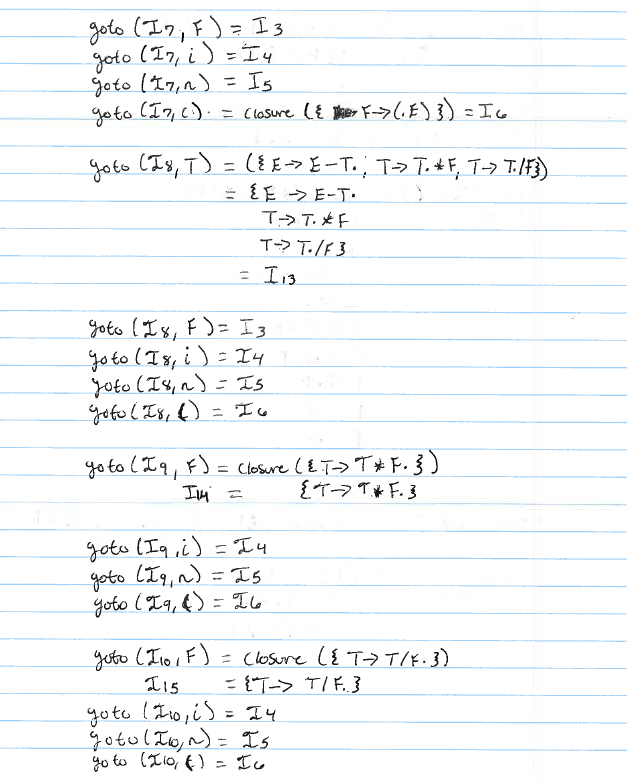 goto (I7, F) = I3
goto (I7, i) = I4
goto (I7, n) = I5
goto (I7, () = closure ({ F→(.E) }) = I6
goto (I8, T) = ({E→E-T., T→T.*F, T→T./F})
= {E→E-T.
T→T.*F
T→T./F}
= I13
goto (I8, F) = I3
goto (I8, i) = I4
goto (I8, n) = I5
goto (I8, () = I6
goto (I9, F) = closure ({T→T*F.})
I14 = {T→T*F.}
goto (I9, i) = I4
goto (I9, n) = I5
goto (I9, () = I6
goto (I10, F) = closure ({T→T/F.})
I15 = {T→T/F.}
goto (I10, i) = I4
goto (I10, n) = I5
goto (I10, () = I6